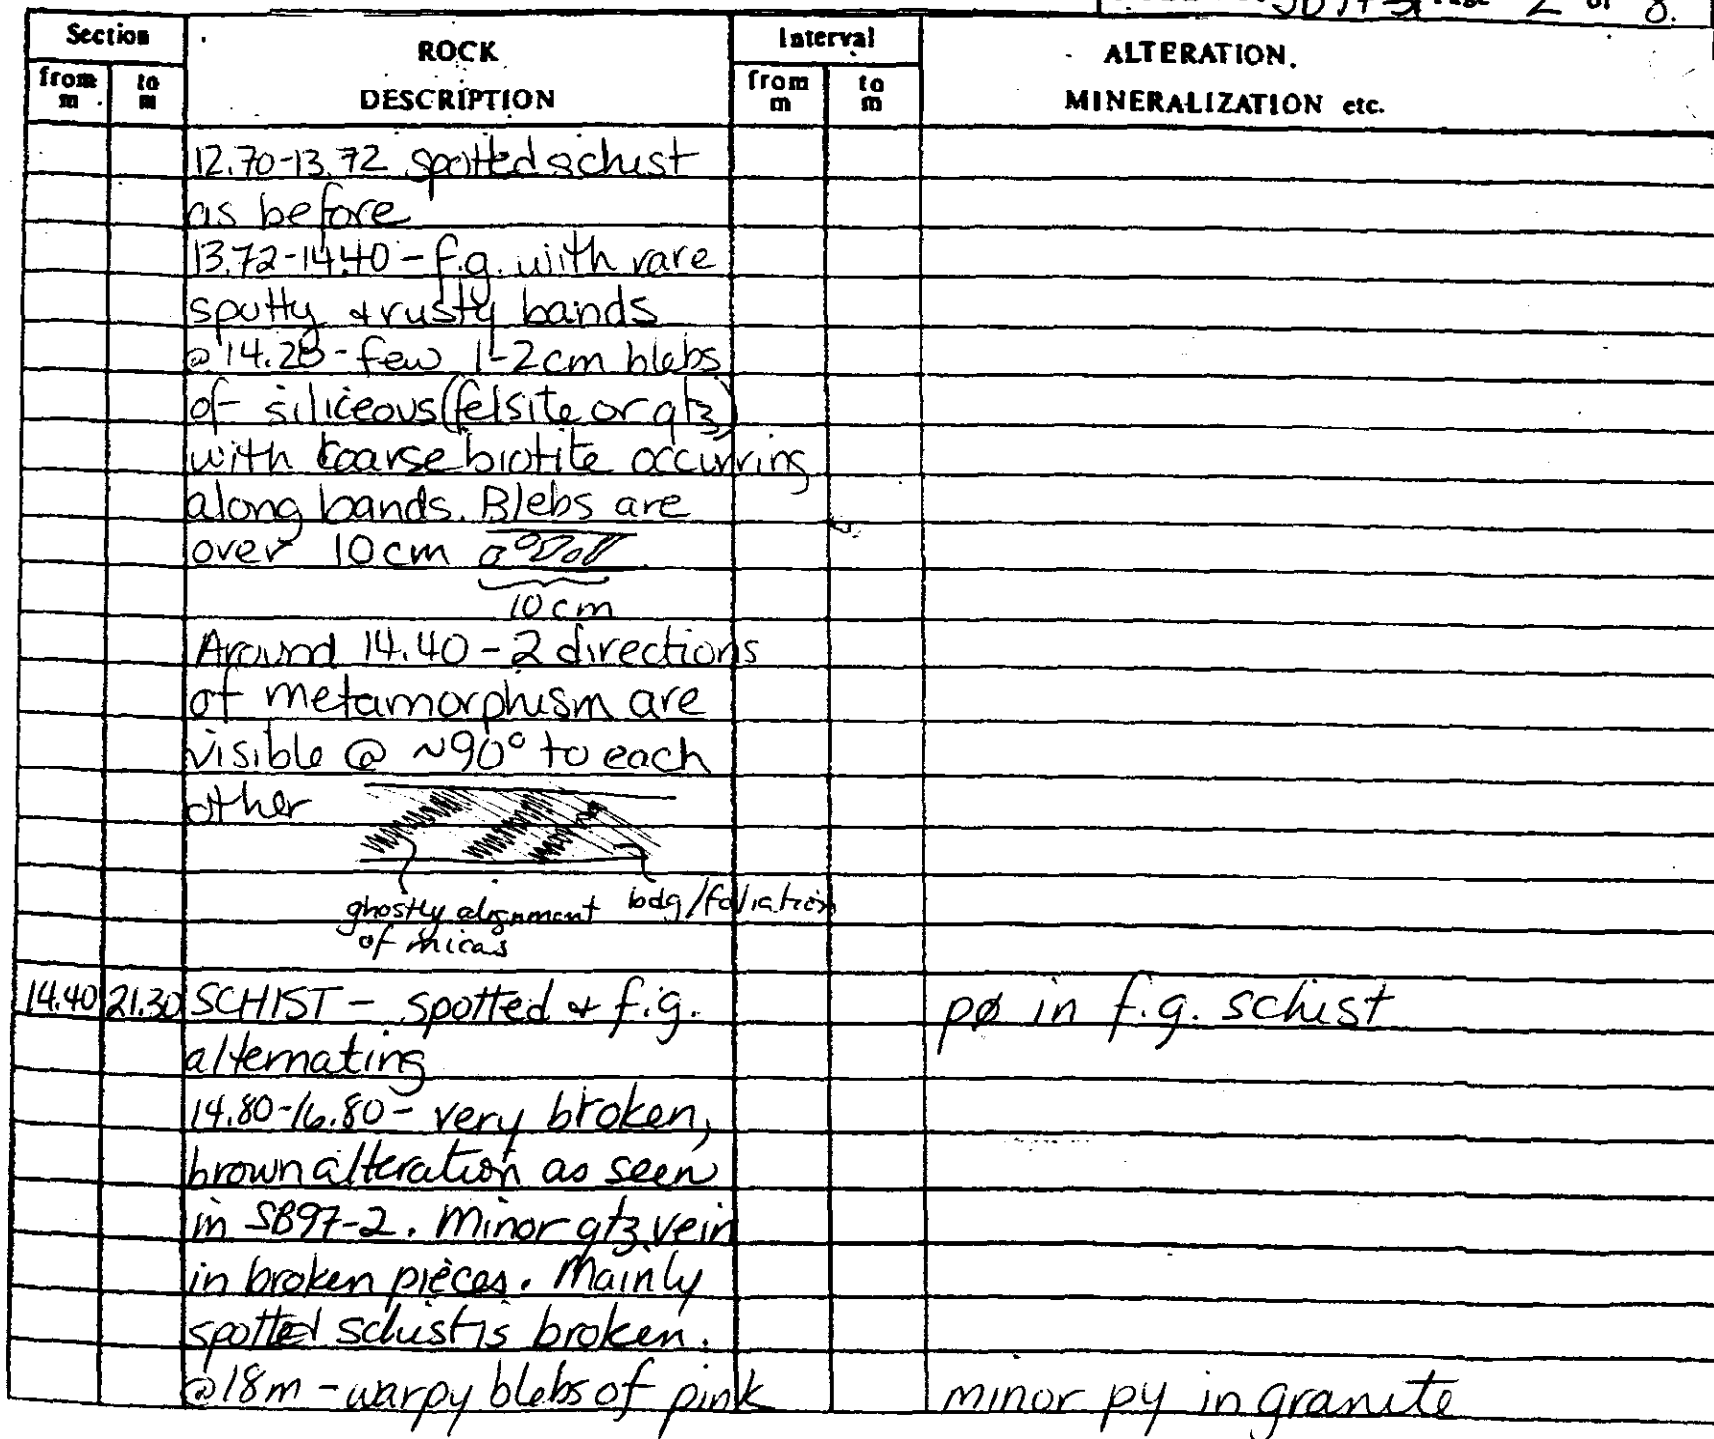 Page 2 of 8.
Section
ROCK DESCRIPTION
Interval
ALTERATION.
MINERALIZATION etc.
from m
to m
from m
to m
12.70-13.72 spotted schist
as before
13.72-14.40 - f.g. with rare
spotty & rusty bands
@ 14.28 - few 1-2cm blebs
of siliceous (felsite or qtz)
with coarse biotite occurring
along bands. Blebs are
over 10cm
10cm
Around 14.40 - 2 directions
of metamorphism are
visible @ ~90° to each
other
ghostly alignment of micas
bdg/foliation
14.40 21.30 SCHIST - spotted & f.g. pø in f.g. schist
alternating
14.80-16.80 - very broken,
brown alteration as seen
in SB97-2. Minor qtz vein
in broken pieces. Mainly
spotted schist is broken.
@18m - warpy blebs of pink minor py in granite